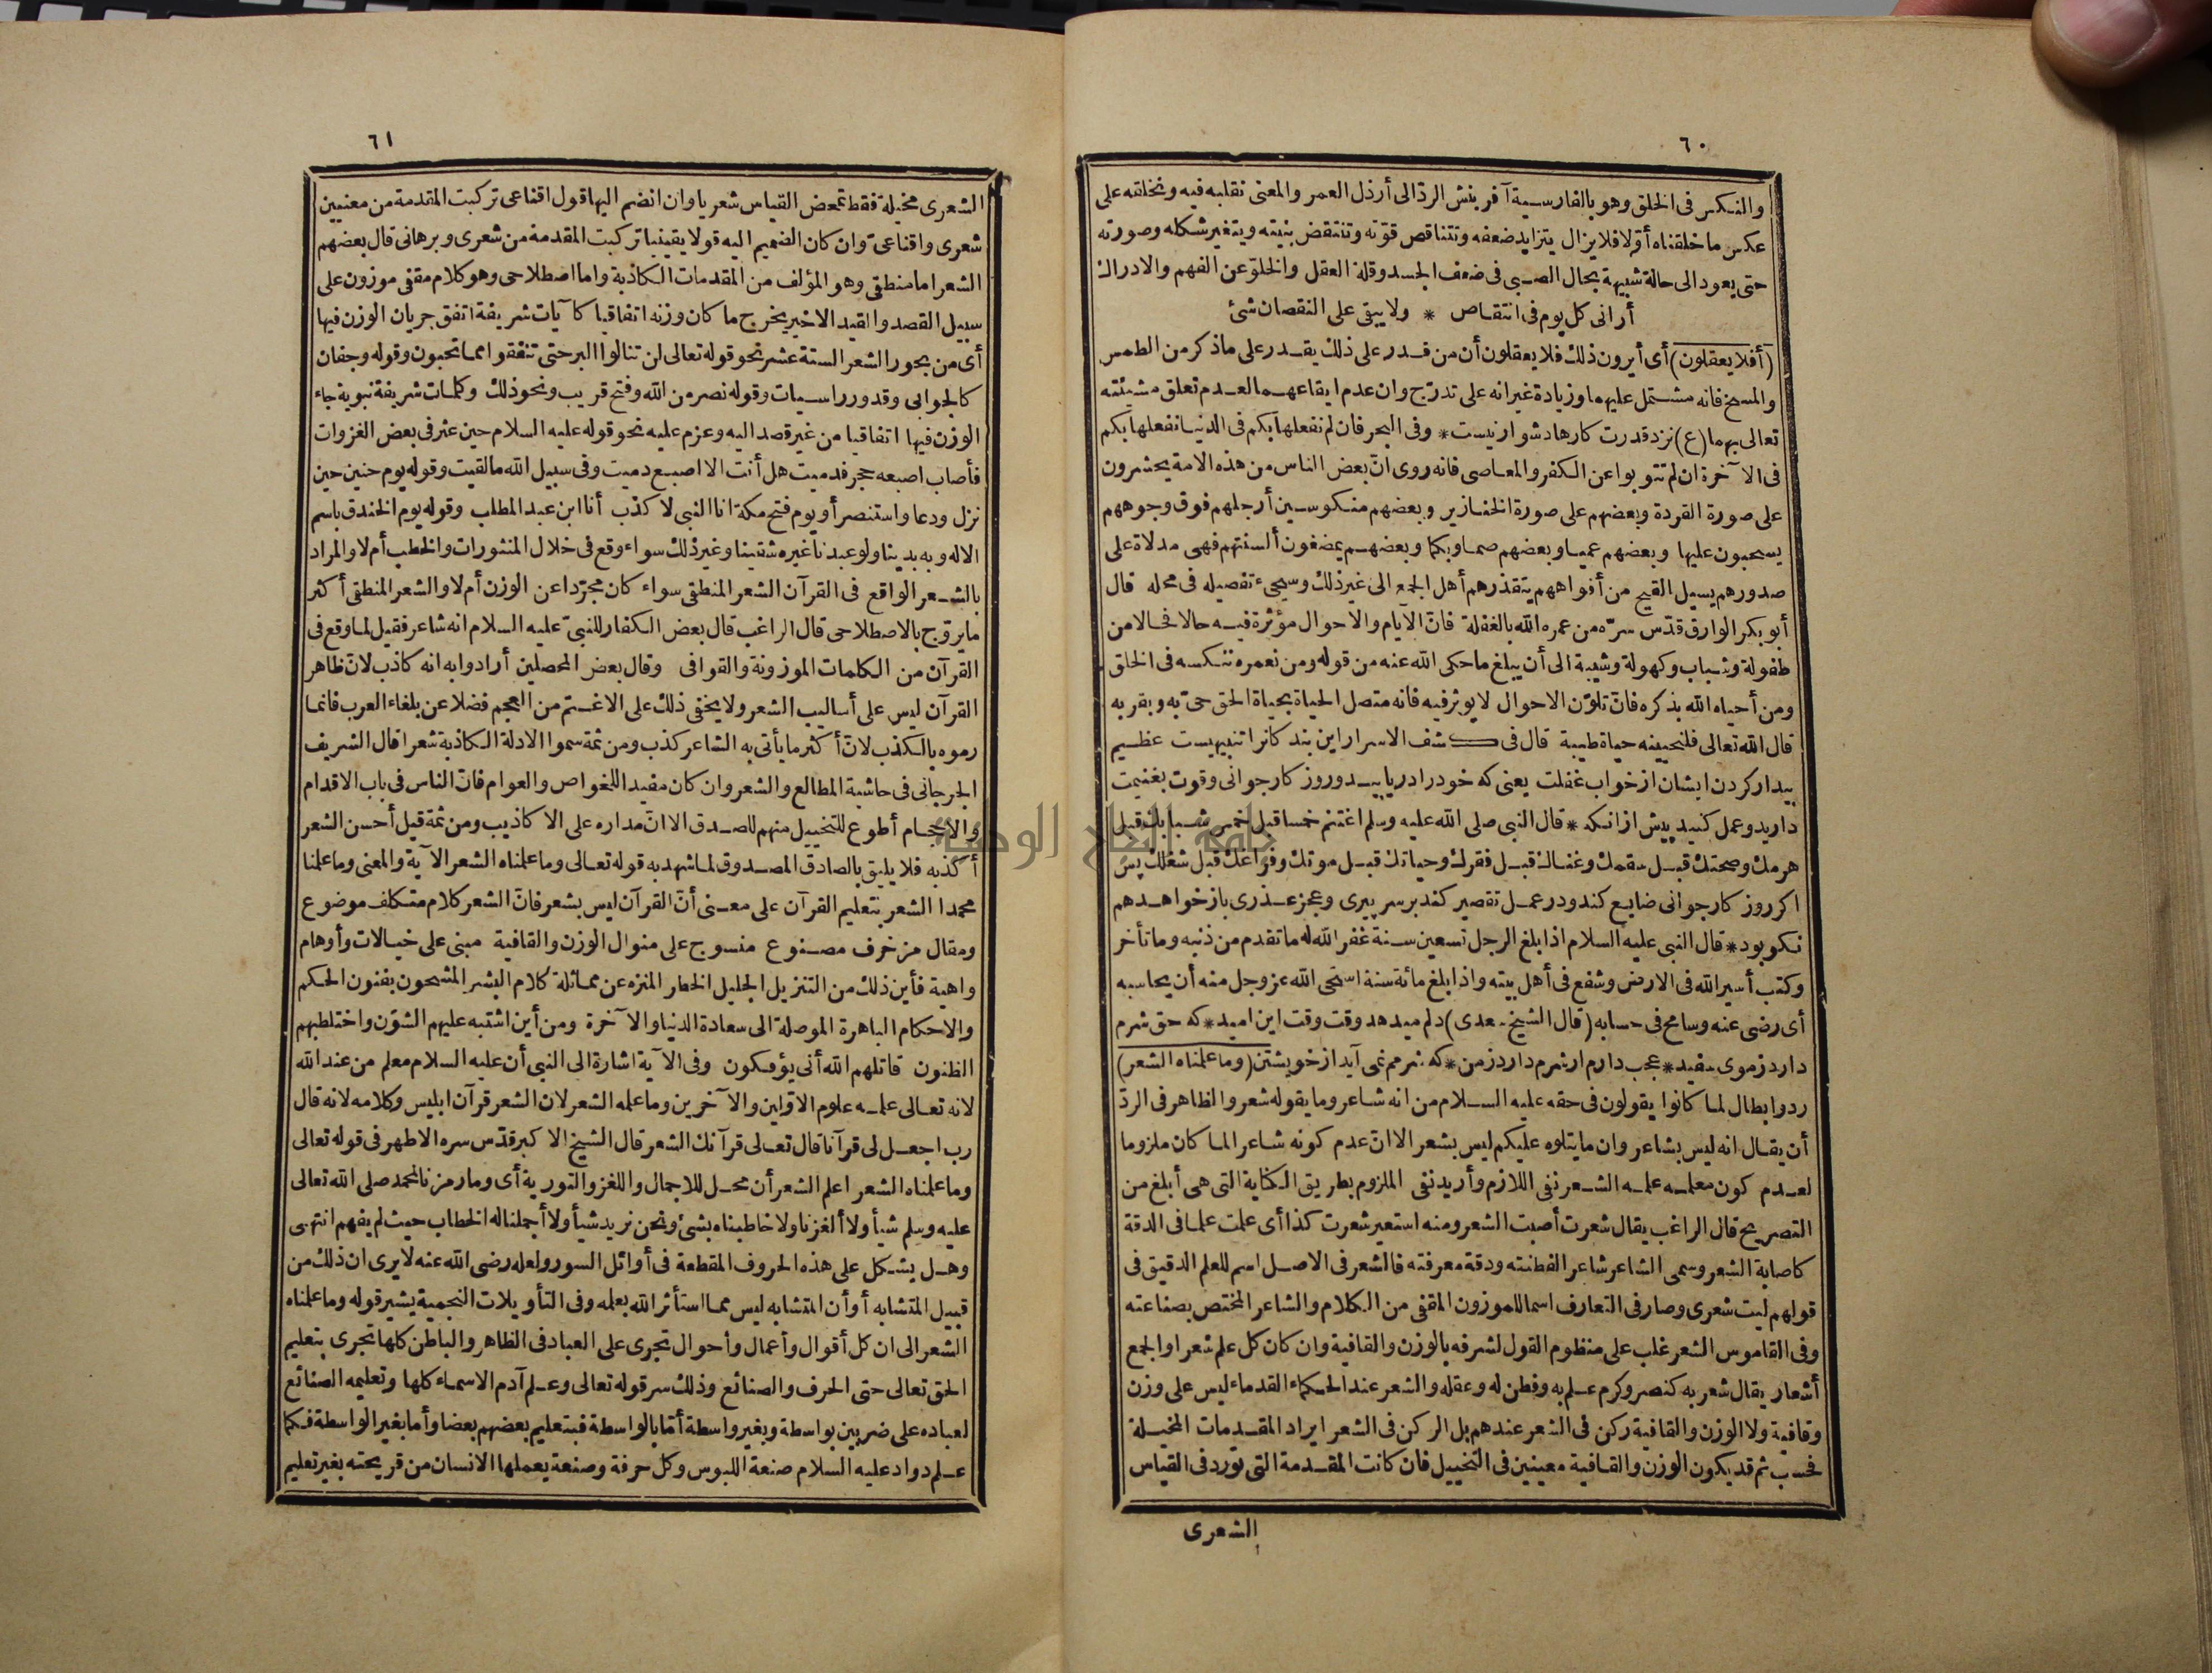 ٦٠
والنكس فى الخلق وهو بالفارسية آفرينش الردّ الى أرذل العمر والمعنى نقلبه فيه ونخلقه على
عكس ما خلقناه أوّلا فلا يزال يتزايد ضعفه وتتناقص قوّته وتنتقض بنيته ويتغير شكله وصورته
حتى يعود الى حالة شبيهة بحال الصبى فى ضعف الجسد وقلة العقل والخلوّ عن الفهم والادراك
أرانى كل يوم فى انتقاص * ولا يبقى على النقصان شئ
(أفلا يعقلون) أى أيرون ذلك فلا يعقلون أن من قدر على ذلك يقدر على ما ذكر من الطمس
والمسخ فانه مشتمل عليهما وزيادة غير انه على تدرّج وان عدم ايقاعهما لعدم تعلق مشيئته
تعالى بهما (ع) نزد قدرت كارها دشوار نيست * وفى البحر فان لم نفعلها بكم فى الدنيا نفعلها بكم
فى الآخرة ان لم تتوبوا عن الكفر والمعاصى فانه روى انّ بعض الناس من هذه الامة يحشرون
على صورة القردة وبعضهم على صورة الخنازير وبعضهم منكوسين أرجلهم فوق وجوههم
يسحبون عليها وبعضهم عميا وبعضهم صما وبكما وبعضهم يمضغون ألسنتهم فهى مدلاة على
صدورهم يسيل القيح من أفواههم يتقذرهم أهل الجمع الى غير ذلك وسيجىء تفصيله فى محله قال
أبو بكر الوارق قدّس سرّه من عمره الله بالغفلة فانّ الايام والاحوال مؤثرة فيه حالا فحالا من
طفولة وشباب وكهولة وشيبة الى أن يبلغ ما حكى الله عنه من قوله ومن نعمره ننكسه فى الخلق
ومن أحياه الله بذكره فانّ تلوّن الاحوال لا يوثر فيه فانه متصل الحياة بحياة الحق حىّ به وبقربه
قال الله تعالى فلنحيينه حياة طيبة قال فى كشف الاسرار اين بند كانرا تنبيهيست عظيم
بيدار كردن ايشان از خواب غفلت يعنى كه خود را دريابيد وروز كار جوانى وقوت بغنيمت
داريد وعمل كنيد پيش ازانكه * قال النبى صلى الله عليه وسلم اغتنم خمسا قبل خمس شبابك قبل
هرمك وصحتك قبل سقمك وغناك قبل فقرك وحياتك قبل موتك وفراغك قبل شغلك پس
اكر روز كار جوانى ضايع كند ودر عمل تقصير كند بر سر پيرى وعجز عذرى باز خواهد هم
نكو بود * قال النبى عليه السلام اذا بلغ الرجل تسعين سنة غفر الله له ما تقدم من ذنبه وما تأخر
وكتب أسير الله فى الارض وشفع فى أهل بيته واذا بلغ مائة سنة استحى الله عز وجل منه أن يحاسبه
أى رضى عنه وسامح فى حسابه (قال الشيخ سعدى) دلم ميدهد وقت وقت اين اميد * كه حق شرم
دارد زموى سفيد * عجب دارم ار شرم دارد ز من * كه شرمم نمى آيد از خويشتن (وما علمناه الشعر)
رد وابطال لما كانوا يقولون فى حقه عليه السلام من انه شاعر وما يقوله شعر والظاهر فى الردّ
أن يقال انه ليس بشاعر وان ما يتلوه عليكم ليس بشعر الا انّ عدم كونه شاعرا لما كان ملزوما
لعدم كون معلمه علمه الشعر نفى اللازم وأريد نفى الملزوم بطريق الكناية التى هى أبلغ من
التصريح قال الراغب يقال شعرت أصبت الشعر ومنه استعير شعرت كذا أى علمت علما فى الدقة
كاصابة الشعر وسمى الشاعر شاعرا لفطنته ودقة معرفته فالشعر فى الاصل اسم للعلم الدقيق فى
قولهم ليت شعرى وصار فى التعارف اسما للموزون المقفى من الكلام والشاعر المختص بصناعته
وفى القاموس الشعر غلب على منظوم القول لشرفه بالوزن والقافية وان كان كل علم شعرا والجمع
أشعار يقال شعر به كنصر وكرم علم به وفطن له وعقله والشعر عند الحكماء القدماء ليس على وزن
وقافية ولا الوزن والقافية ركن فى الشعر عندهم بل الركن فى الشعر ايراد المقدمات المخيلة
فحسب ثم قد يكون الوزن والقافية معينين فى التخييل فان كانت المقدمة التى تورد فى القياس
الشعرى
٦١
الشعرى مخيلة فقط تمحض القياس شعريا وان انضم اليها قول اقناعى تركبت المقدمة من معنيين
شعرى واقناعىّ وان كان الضميم اليه قولا يقينيا تركبت المقدمة من شعرى وبرهانى قال بعضهم
الشعر اما منطقى وهو المؤلف من المقدمات الكاذبة واما اصطلاحى وهو كلام مقفى موزون على
سبيل القصد والقيد الاخير يخرج ما كان وزنه اتفاقيا كآيات شريفة اتفق جريان الوزن فيها
أى من بحور الشعر الستة عشر نحو قوله تعالى لن تنالوا البر حتى تنفقوا مما تحبون وقوله وجفان
كالجوابى وقدور راسيات وقوله نصر من الله وفتح قريب ونحو ذلك وكلمات شريفة نبوية جاء
الوزن فيها اتفاقيا من غير قصد اليه وعزم عليه نحو قوله عليه السلام حين عثر فى بعض الغزوات
فأصاب اصبعه حجر فدميت هل أنت الا اصبع دميت وفى سبيل الله ما لقيت وقوله يوم حنين حين
نزل ودعا واستنصر أو يوم فتح مكة انا النبى لا كذب أنا ابن عبد المطلب وقوله يوم الخندق باسم
الاله وبه بدينا ولو عبدنا غيره شقينا وغير ذلك سواء وقع فى خلال المنثورات والخطب أم لا والمراد
بالشعر الواقع فى القرآن الشعر المنطقى سواء كان مجرّدا عن الوزن أم لا والشعر المنطقى أكثر
ما يروّج بالاصطلاحى قال الراغب قال بعض الكفار للنبىّ عليه السلام انه شاعر فقيل لما وقع فى
القرآن من الكلمات الموزونة والقوافى وقال بعض المحصلين أرادوا به انه كاذب لانّ ظاهر
القرآن ليس على أساليب الشعر ولا يخفى ذلك على الاغتم من العجم فضلا عن بلغاء العرب فانما
رموه بالكذب لانّ أكثر ما يأتى به الشاعر كذب ومن ثمة سموا الادلة الكاذبة شعرا قال الشريف
الجرجانى فى حاشية المطالع والشعر وان كان مفيدا للخواص والعوام فانّ الناس فى باب الاقدام
والاحجام أطوع للتخييل منهم للصدق الا انّ مداره على الاكاذيب ومن ثمة قيل أحسن الشعر
أكذبه فلا يليق بالصادق المصدوق لما شهد به قوله تعالى وما علمناه الشعر الآية والمعنى وما علمنا
محمدا الشعر بتعليم القرآن على معنى أنّ القرآن ليس بشعر فانّ الشعر كلام متكلف موضوع
ومقال مزخرف مصنوع منسوج على منوال الوزن والقافية مبنى على خيالات وأوهام
واهية فأين ذلك من التنزيل الجليل الخطر المنزه عن مماثلة كلام البشر المشحون بفنون الحكم
والاحكام الباهرة الموصلة الى سعادة الدنيا والآخرة ومن أين اشتبه عليهم الشؤن واختلط بهم
الظنون قاتلهم الله أنى يؤفكون وفى الآية اشارة الى النبى أن عليه السلام معلم من عند الله
لانه تعالى علمه علوم الاوّلين والآخرين وما علمه الشعر لان الشعر قرآن ابليس وكلامه لانه قال
رب اجعل لى قرآنا قال تعالى قرآنك الشعر قال الشيخ الاكبر قدّس سره الاطهر فى قوله تعالى
وما علمناه الشعر اعلم الشعر أن محل للاجمال واللغز والتورية أى وما رمزنا لمحمد صلى الله تعالى
عليه وسلم شيأ ولا ألغزنا ولا خاطبناه بشئ ونحن نريد شيأ ولا أجملنا له الخطاب حيث لم يفهم انتهى
وهل يشكل على هذه الحروف المقطعة فى أوائل السور ولعله رضى الله عنه لا يرى ان ذلك من
قبيل المتشابه أو أن المتشابه ليس مما استأثر الله بعلمه وفى التأويلات النجمية يشير قوله وما علمناه
الشعر الى ان كل أقوال وأعمال وأحوال تجرى على العباد فى الظاهر والباطن كلها تجرى بتعليم
الحق تعالى حتى الحرف والصنائع وذلك سر قوله تعالى وعلم آدم الاسماء كلها وتعليمه الصنائع
لعباده على ضربين بواسطة وبغير واسطة أمّا بالواسطة فبتعليم بعضهم بعضا وأما بغير الواسطة فكما
علم دواد عليه السلام صنعة اللبوس وكل حرفة وصنعة يعملها الانسان من قريحته بغير تعليم
جامعة النجاح الوطنية